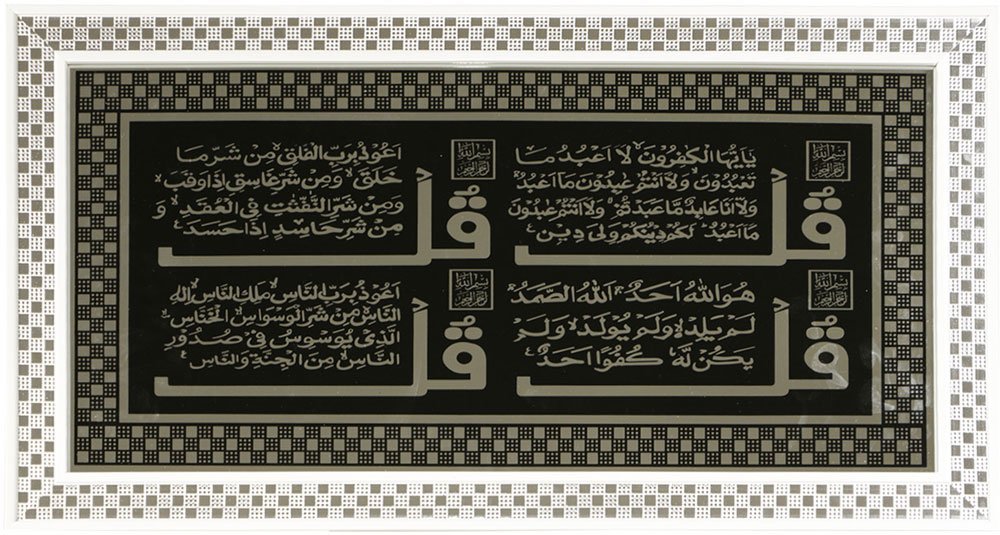 بسم الله الرحمن الرحيم
قُلْ
يٰٓاَيُّهَا الْكٰفِرُوْنَ ۙ لَاۤ اَعْبُدُ مَا
تَعْبُدُوْنَ ۙ وَلَاۤ اَنْتُمْ عٰبِدُوْنَ مَاۤ اَعْبُدُ ۚ
وَلَاۤ اَنَا عَابِدٌ مَّا عَبَدْتُّمْ ۙ وَلَاۤ اَنْتُمْ عٰبِدُوْنَ
مَاۤ اَعْبُدُ ؕ لَكُمْ دِيْنُكُمْ وَلِيَ دِيْنِ
بسم الله الرحمن الرحيم
قُلْ
اَعُوْذُ بِرَبِّ الْفَلَقِ ۙ مِنْ شَرِّ مَا
خَلَقَ ۙ وَمِنْ شَرِّ غَاسِقٍ اِذَا وَقَبَ ۙ
وَمِنْ شَرِّ النَّفّٰثٰتِ فِي الْعُقَدِ ۙ وَ
مِنْ شَرِّ حَاسِدٍ اِذَا حَسَدَ
بسم الله الرحمن الرحيم
قُلْ
هُوَ اللّٰهُ اَحَدٌ ۚ اَللّٰهُ الصَّمَدُ ۚ
لَمْ يَلِدْ ۙ وَلَمْ يُوْلَدْ ۙ وَلَمْ
يَكُنْ لَّهٗ كُفُوًا اَحَدٌ
بسم الله الرحمن الرحيم
قُلْ
اَعُوْذُ بِرَبِّ النَّاسِ ۙ مَلِكِ النَّاسِ ۙ اِلٰهِ
النَّاسِ ۙ مِنْ شَرِّ الْوَسْوَاسِ ۙ الْخَنَّاسِ ۙ
الَّذِيْ يُوَسْوِسُ فِيْ صُدُوْرِ
النَّاسِ ۙ مِنَ الْجِنَّةِ وَالنَّاسِ